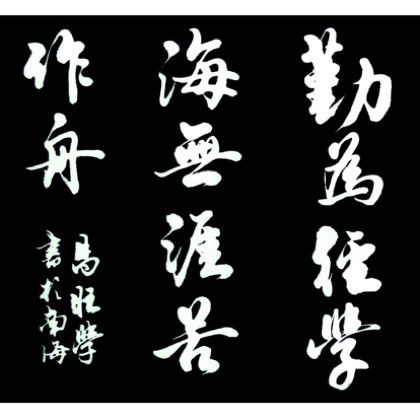 勤為徑學
海無涯苦
作舟
馬旺學
書於南海